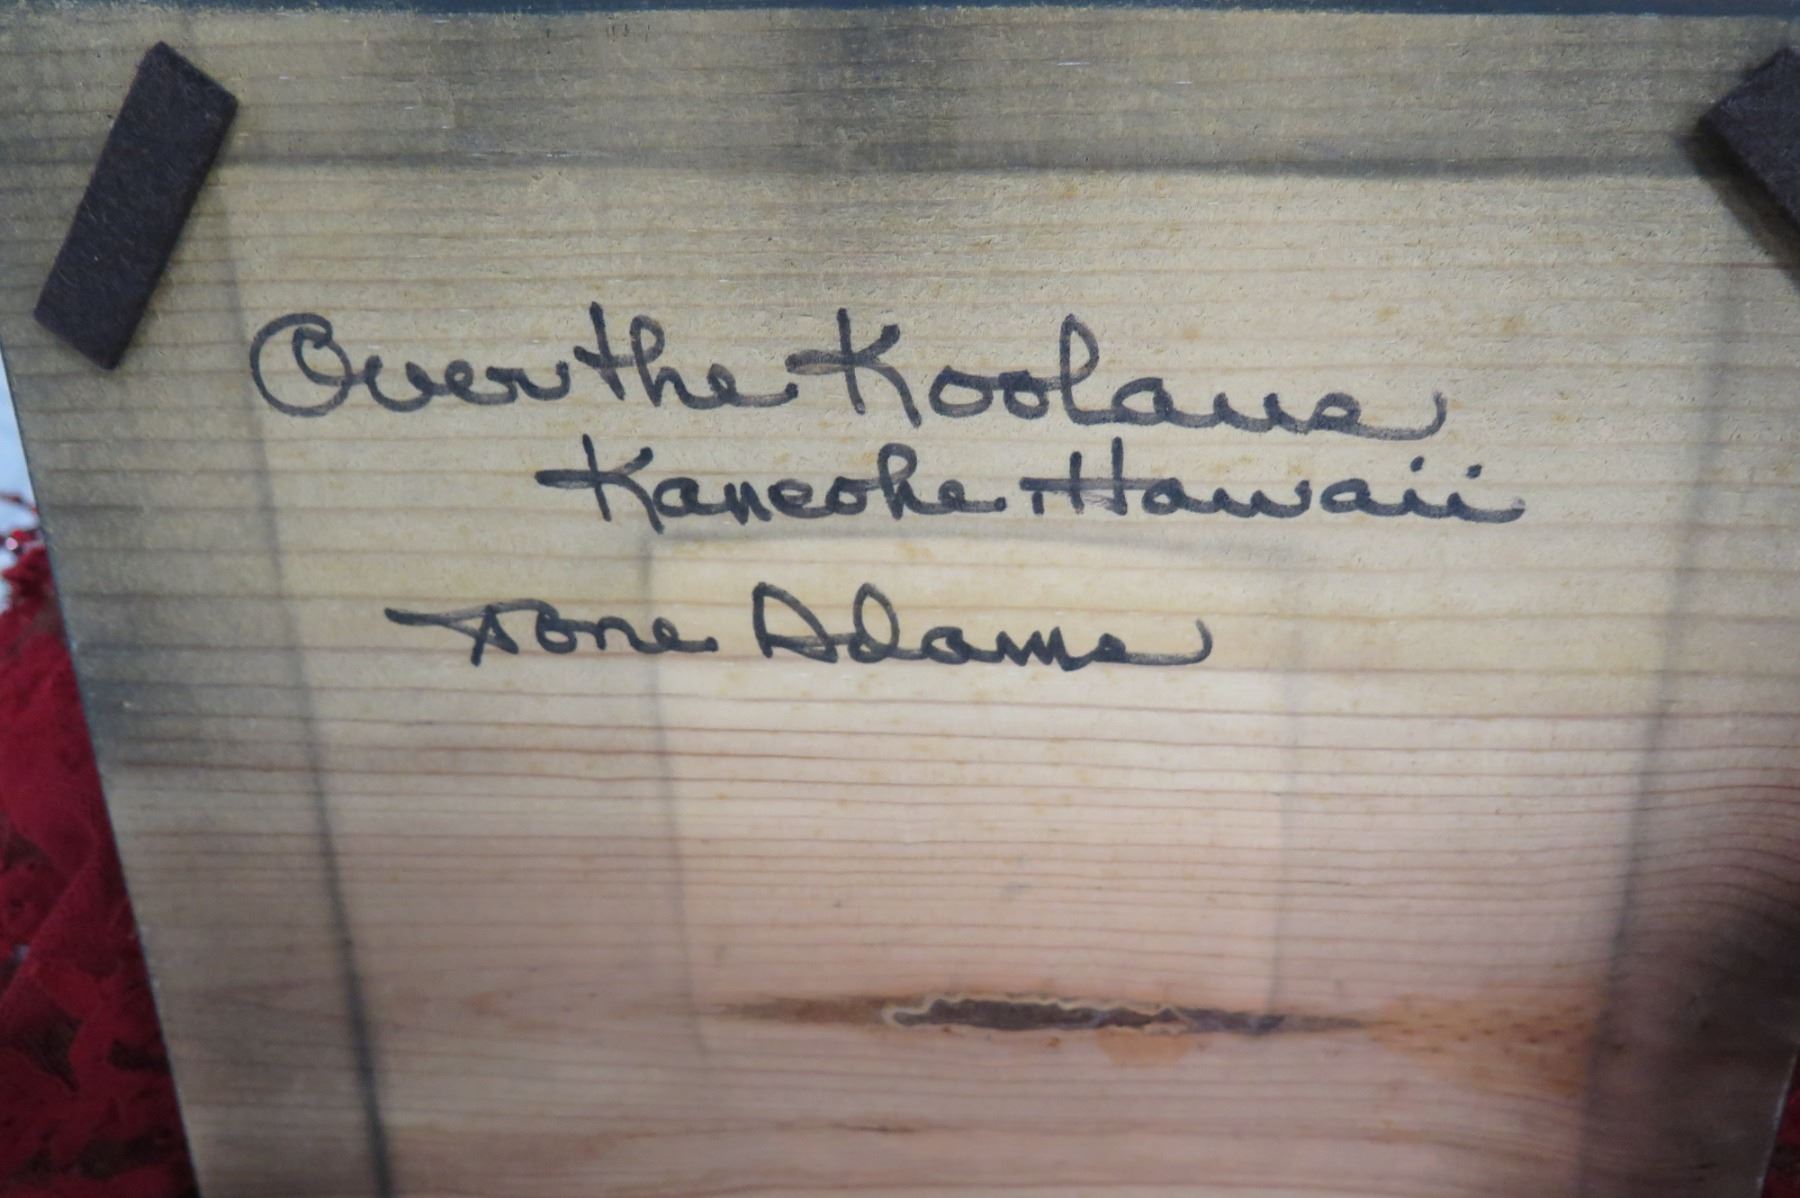 Over the Koolaus
Kaneohe Hawaii
Tone Adams